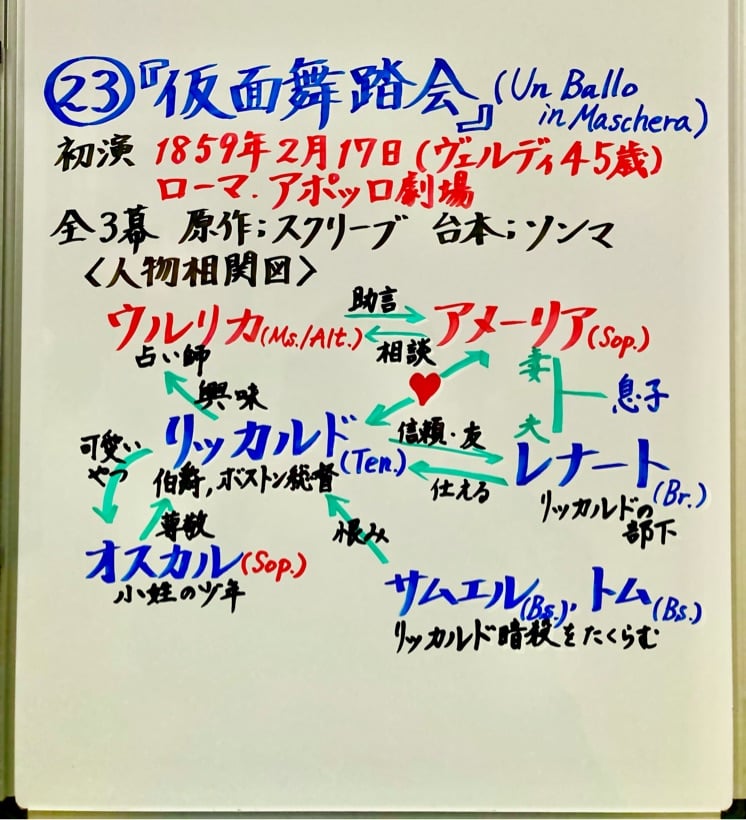 ㉓『仮面舞踏会』(Un Ballo in Maschera)
初演 1859年2月17日(ヴェルディ45歳)
ローマ.アポッロ劇場
全3幕 原作;スクリーブ 台本;ソンマ
〈人物相関図〉
助言
ウルリカ(Ms./Alt.) アメーリア(Sop.)
占い師 相談
妻
興味 息子
夫
可愛いやつ リッカルド(Ten.) 信頼・友 レナート(Br.)
伯爵,ボストン総督 仕える リッカルドの部下
尊敬 恨み
オスカル(Sop.)
小姓の少年
サムエル(Bs.).トム(Bs.)
リッカルド暗殺をたくらむ